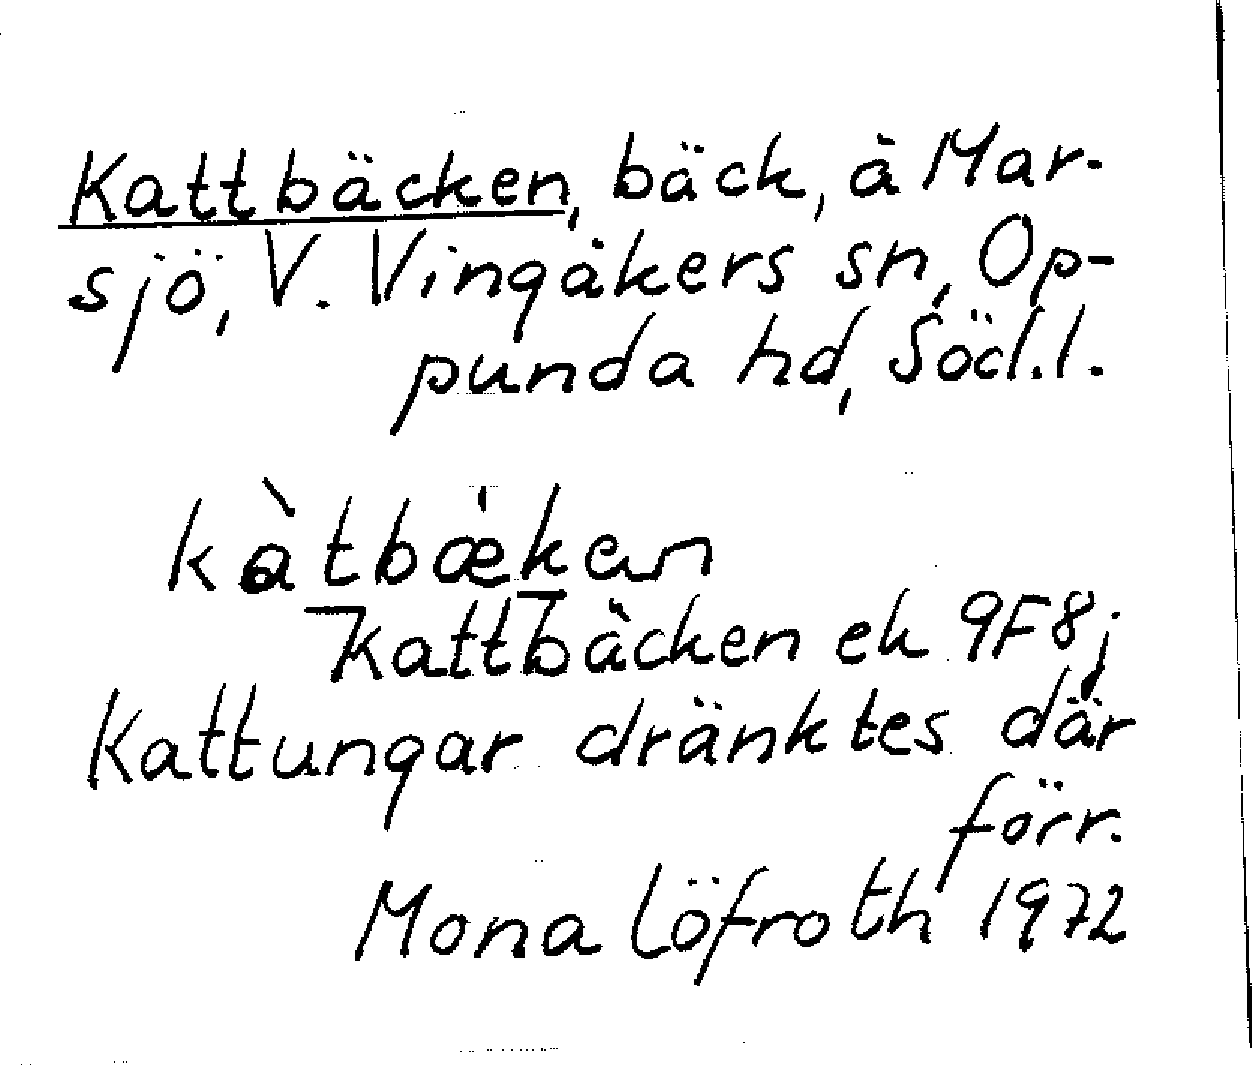 Kattbäcken, bäck, å Mar-
sjö, V. Vingåkers sn, Op-
punda hd, Södl.l.
kàtbæ̀ken
Kattbäcken ek 9F8j
Kattungar dränktes där
förr.
Mona Löfroth 1972